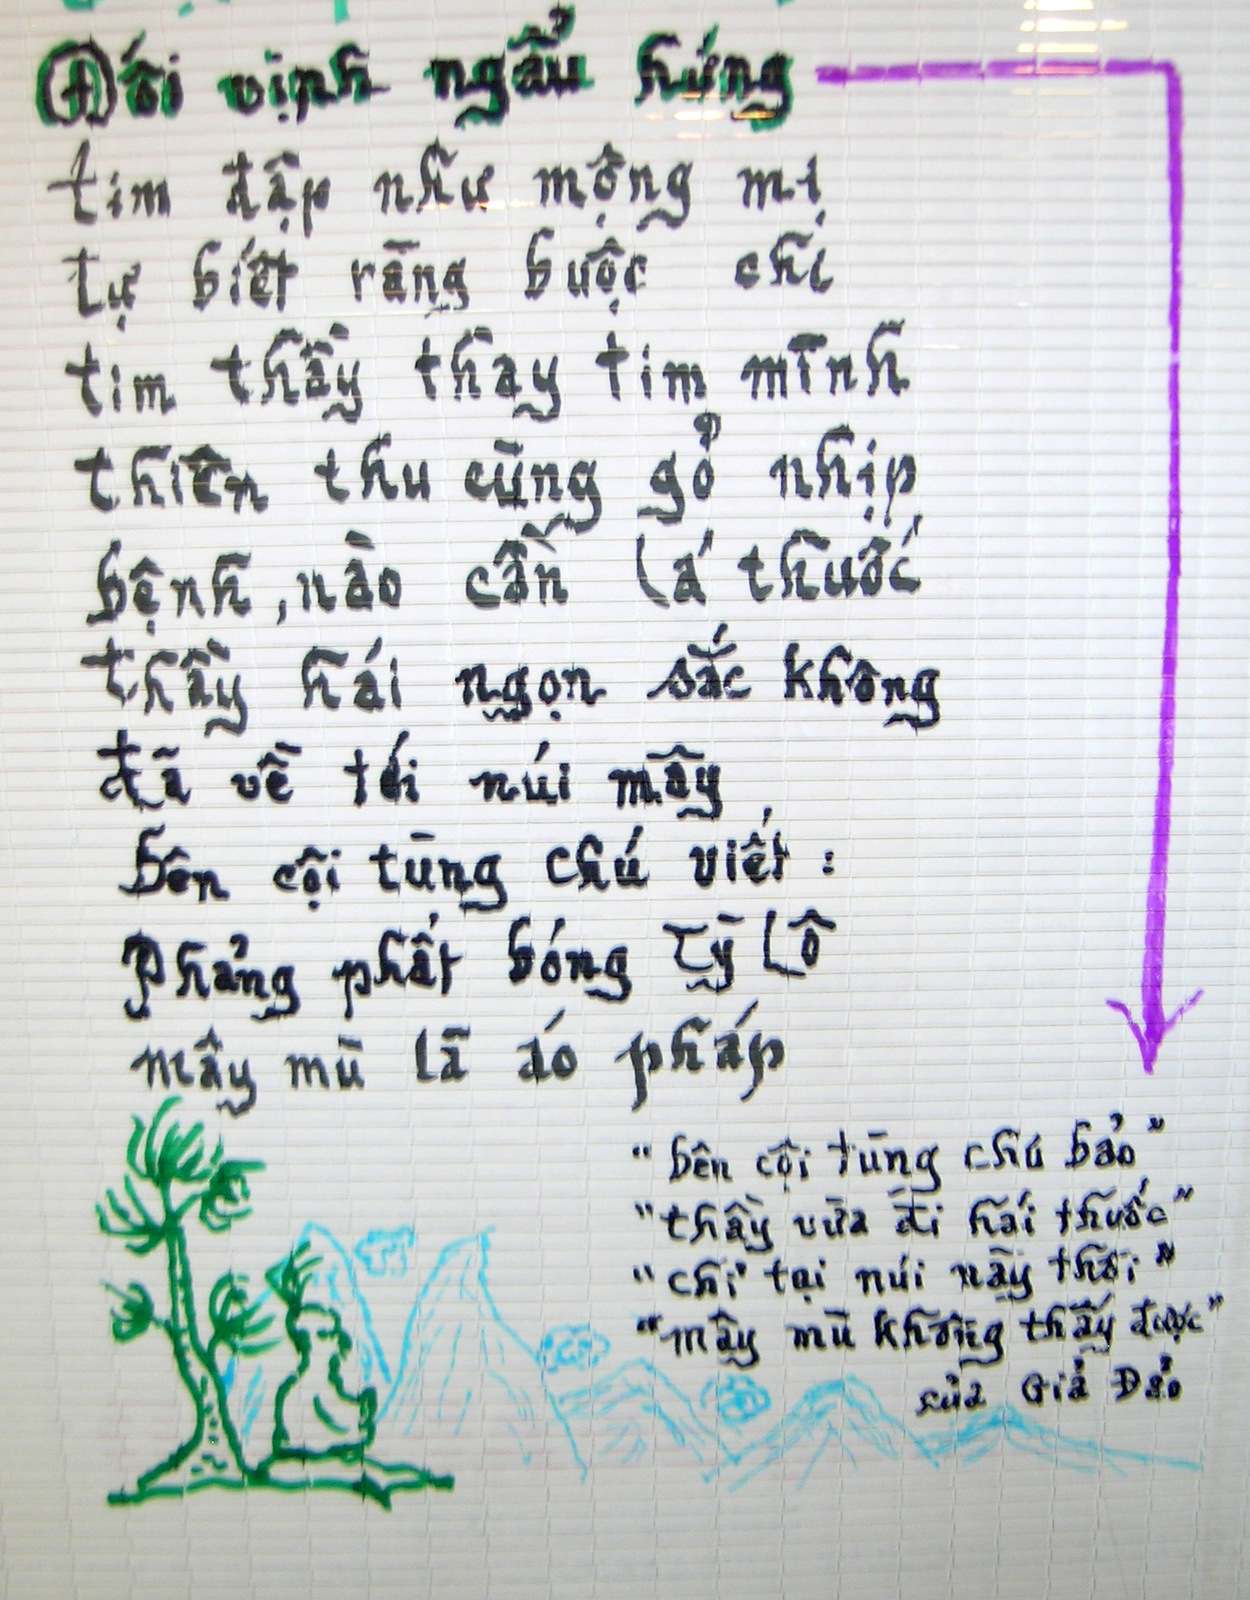 Đối vịnh ngẫu hứng
tim đập như mộng mị
tự biết ràng buộc chi
tim thầy thay tim mình
thiên thu cũng gỏ nhịp
bệnh, nào cần lá thuốc
thầy hái ngọn sắc không
đã về tới núi mây
bên cội tùng chú viết :
Phảng phất bóng Tỳ Lô
mây mù là áo pháp
"bên cội tùng chú bảo"
"thầy vừa đi hái thuốc"
"chỉ tại núi nầy thôi"
"mây mù không thấy được"
của Giả Đảo